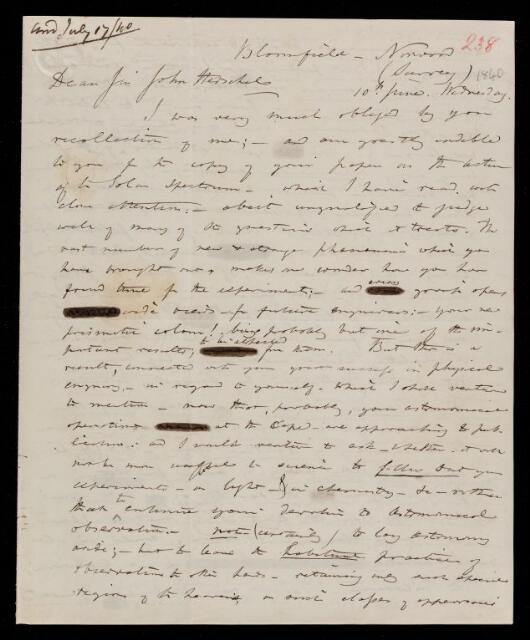 And July 17/40
238
Bloomfield - Norwood
(Surrey) 1840
Dear Sir John Herschel
10th June. Wednesday.
I was very much obliged by your
recollection of me; - and am greatly indebted
to you for the copy of your paper on the action
of the Solar Spectrum - which I have read with
close attention; - albeit unqualified to judge
well of many of the questions which it treats. The
vast number of new & strange phenomena which you
have brought out makes me wonder how you have
found time for the experiments; - and your opens
wide for future enquirers: - your new
prismatic colour! being probably but one of the im-
portant results, to be expected from them. But there is a
result, connected with your great success in physical
enquiry, - in regard to yourself - which I shall venture
to mention - now that, probably, your astronomical
operations at the Cape - are approaching to pub-
lication: and I would venture to ask - whether it will
not be more useful to science to follow out your
experiments - on light - & in chemistry - &c - rather
than to continue your to astronomical
observation - not (certainly) to lay astronomy
aside; - but to leave the habitual practice of
observation to other hands - retaining only such especial
regions of the heavens or such classes of appearances